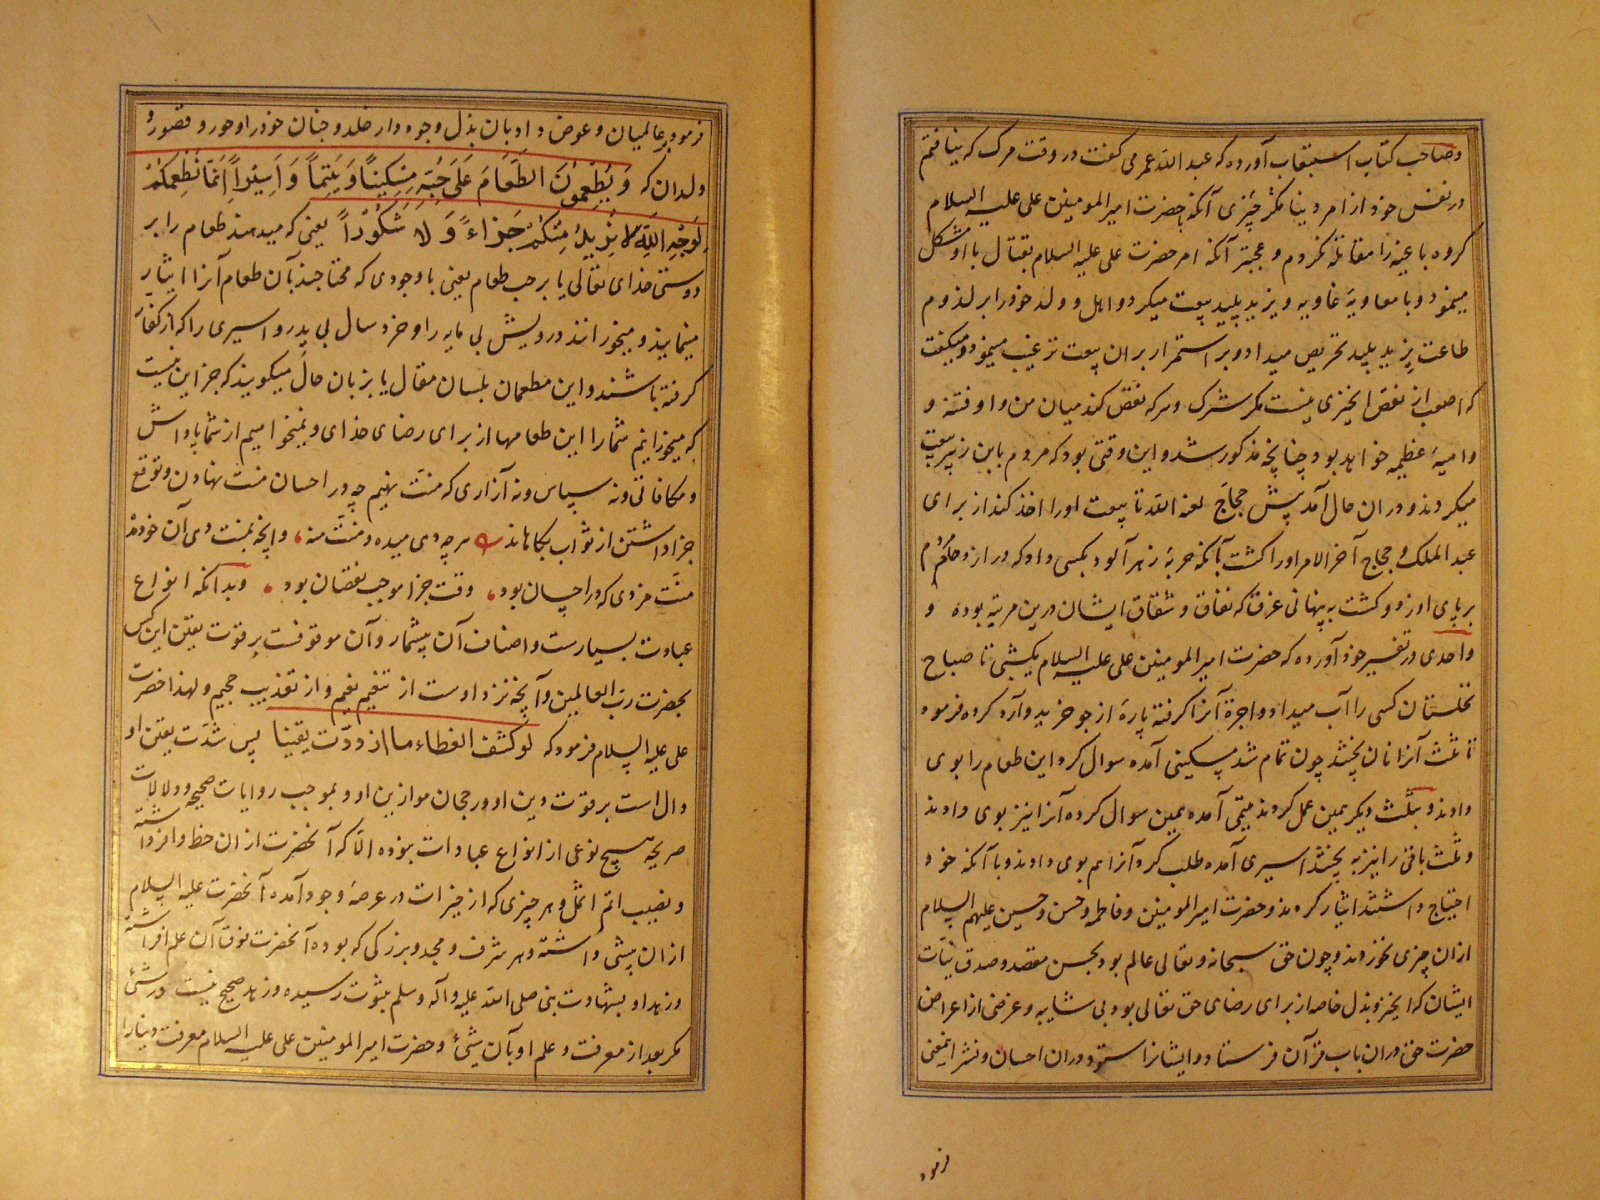 وصاحب کتاب استیعاب آورده که عبد الله عمر می گفت در وقت مرک که نیافتم
در نفس خود از امر دنیا مکر چیزی آنکه بحضرت امیر المومنین علی علیه السلام
کروه باغیه را مقاتله نکردم و عجبتر آنکه امر حضرت علی علیه السلام بقتال با او مشکل
مینمود و با معاویهٔ غاویه و یزید پلید بیعت میکرد و اهل و ولد خود را بر لزوم
طاعت یزید پلید تحریص میداد و بر استمرار بران بیعت ترغیب مینمود و میکفت
که اصعب از نقض این چیزی نیست مکر شرک و هرکه نقض کند میان من و او فتنه و
داهیهٔ عظیمه خواهد بود چنانچه مذکور شد و این وقتی بود که مردم بابن زبیر بیعت
میکردند و دران حال آمد پیش حجاج لعنه الله تا بیعت او را اخذ کند از برای
عبد الملک و حجاج آخر الامر او را کشت بآنکه حربهٔ زهر آلود بکسی داد که در ازدحام مردم
بر پای او زد و کشت به پنهانی غرق که نفاق و شقاق ایشان درین مرتبه بوده و
واحدی در تفسیر خود آورده که حضرت امیر المومنین علی علیه السلام یکشبی تا صباح
نخلستان کسی را آب میداد و اجرة آنرا کرفته پارهٔ از جو خرید و آرد کرده فرمود
تا ثلث آنرا نان پختند چون تمام شد مسکینی آمده سوال کرد این طعام را بوی
دادند و بثلث دیکر همین عمل کردند یتیمی آمده همین سوال کرده آنرا نیز بوی دادند
و ثلث باقی را نیز به پختند اسیری آمده طلب کرد و آنرا هم بوی دادند و با آنکه خود
احتیاج داشتند ایثار کردند و حضرت امیر المومنین و فاطمه و حسن و حسین علیهم السلام
ازان چیزی نخوردند و چون حق سبحانه و تعالی عالم بود بحسن مقصد و صدق نیّات
ایشان که این خیر و بذل خاصه از برای رضای حق تعالی بود بی شایبه و غرضی از اعراض
حضرت حق دران باب قرآن فرستاد و ایشانرا ستود و دران احسان و نشر اینمعنی
فرمود
فرمود بر عالمیان و عوض داد بآن بذل وجود دار خلد و جنان خود را و حور و قصور و
ولدان که وَيُطْعِمُونَ الطَّعَامَ عَلَى حُبِّهِ مِسْكِينًا وَيَتِيمًا وَأَسِيرًا إِنَّمَا نُطْعِمُكُمْ
لِوَجْهِ اللَّهِ لَا نُرِيدُ مِنْكُمْ جَزَاءً وَلَا شُكُورًا یعنی که میدهند طعام را بر
دوستی خدای تعالی یا بر حب طعام یعنی با وجودی که محتاجند بآن طعام آنرا ایثار
مینمایند و میخورانند درویش بی مایه را و خرد سال بی پدر و اسیری را که از کفار
کرفته باشند و این مطعمان بلسان مقال یا بزبان حال میکویند که جز این نیست
که میخورانیم شما را این طعامها از برای رضای خدای و نمیخواهیم از شما پاداش
و مکافاتی و نه سپاس و نه آزاری که منت نهیم چه در احسان منت نهادن و توقع
جزا داشتن از ثواب بکاهاند هر چه دی میده و منّت منه وانچه بمنت دی آن خود مده
منّت و مزدی که در احسان بود وقت جزا موجب نقصان بود وبدانکه انواع
عبادت بسیارست و اصناف آن بیشمار و آن موقوفست بر قوت یقین این کس
بحضرت ربّ العالمین و آنچه نزد اوست از تنعیم نعیم و از تعذیب جحیم و لهذا حضرت
علی علیه السلام فرمود که لو کشف الغطاء ما ازددت یقینا پس شدّت یقین او
دال است بر قوّت دین او و رجحان موازین او و بموجب روایات صحیحه و دلالات
صریحه هیچ نوعی از انواع عبادات نبوده الا که آنحضرت ازان حظ وافر داشته
و نصیب اتم اکمل و هر چیزی که از خیرات در عرصهٔ وجود آمده آنحضرت علیه السلام
ازان بیشی داشته و هر شرف و مجد و بزرکی که بوده آنحضرت فوق آن علم افراشته
و زهد او بشهادت نبی صلی الله علیه و آله و سلم بثبوت رسیده و زهد صحیح نیست در شئ
مکر بعد از معرفت و علم او بآن شئ و حضرت امیر المومنین علی علیه السلام معرفت دنیا را